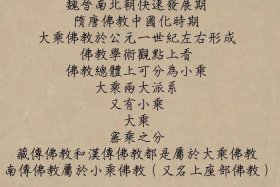 魏晉南北朝快速發展期
隋唐佛教中國化時期
大乘佛教於公元一世紀左右形成
佛教學術觀點上看
佛教總體上可分為小乘
大乘兩大派系
又有小乘
大乘
密乘之分
藏傳佛教和漢傳佛教都是屬於大乘佛教
南傳佛教屬於小乘佛教（又名上座部佛教）